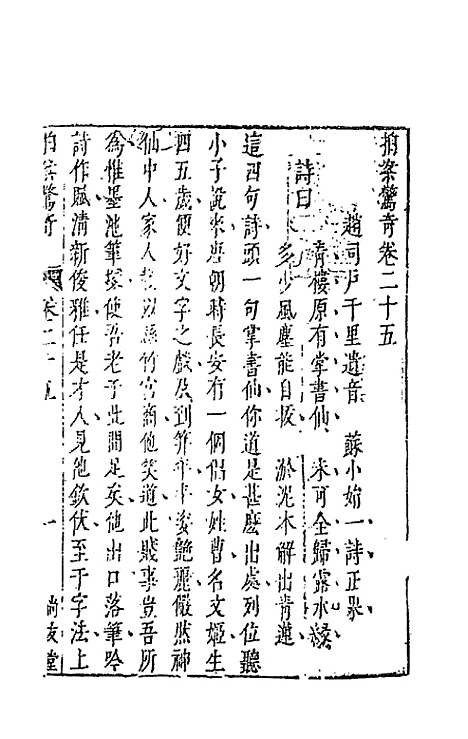 拍案驚奇卷二十五
趙司戶千里遺音 蘇小娟一詩正果
詩曰
青樓原有掌書仙 未可全歸露水緣
多少風塵能自拔 淤泥本解出青蓮
這四句詩頭一句掌書仙你道是甚麽出處列位聽
小子說來唐朝時長安有一個倡女姓曹名文姬生
四五歲便好文字之戲及到笄年丰姿艷麗儼然神
仙中人家人教以絲竹宮商他笑道此賤事豈吾所
爲惟墨池筆塚使吾老于此間足矣他出口落筆吟
詩作賦清新俊雅任是才人見他欽伏至于字法上
拍案驚奇 卷二十五 一 尚友堂